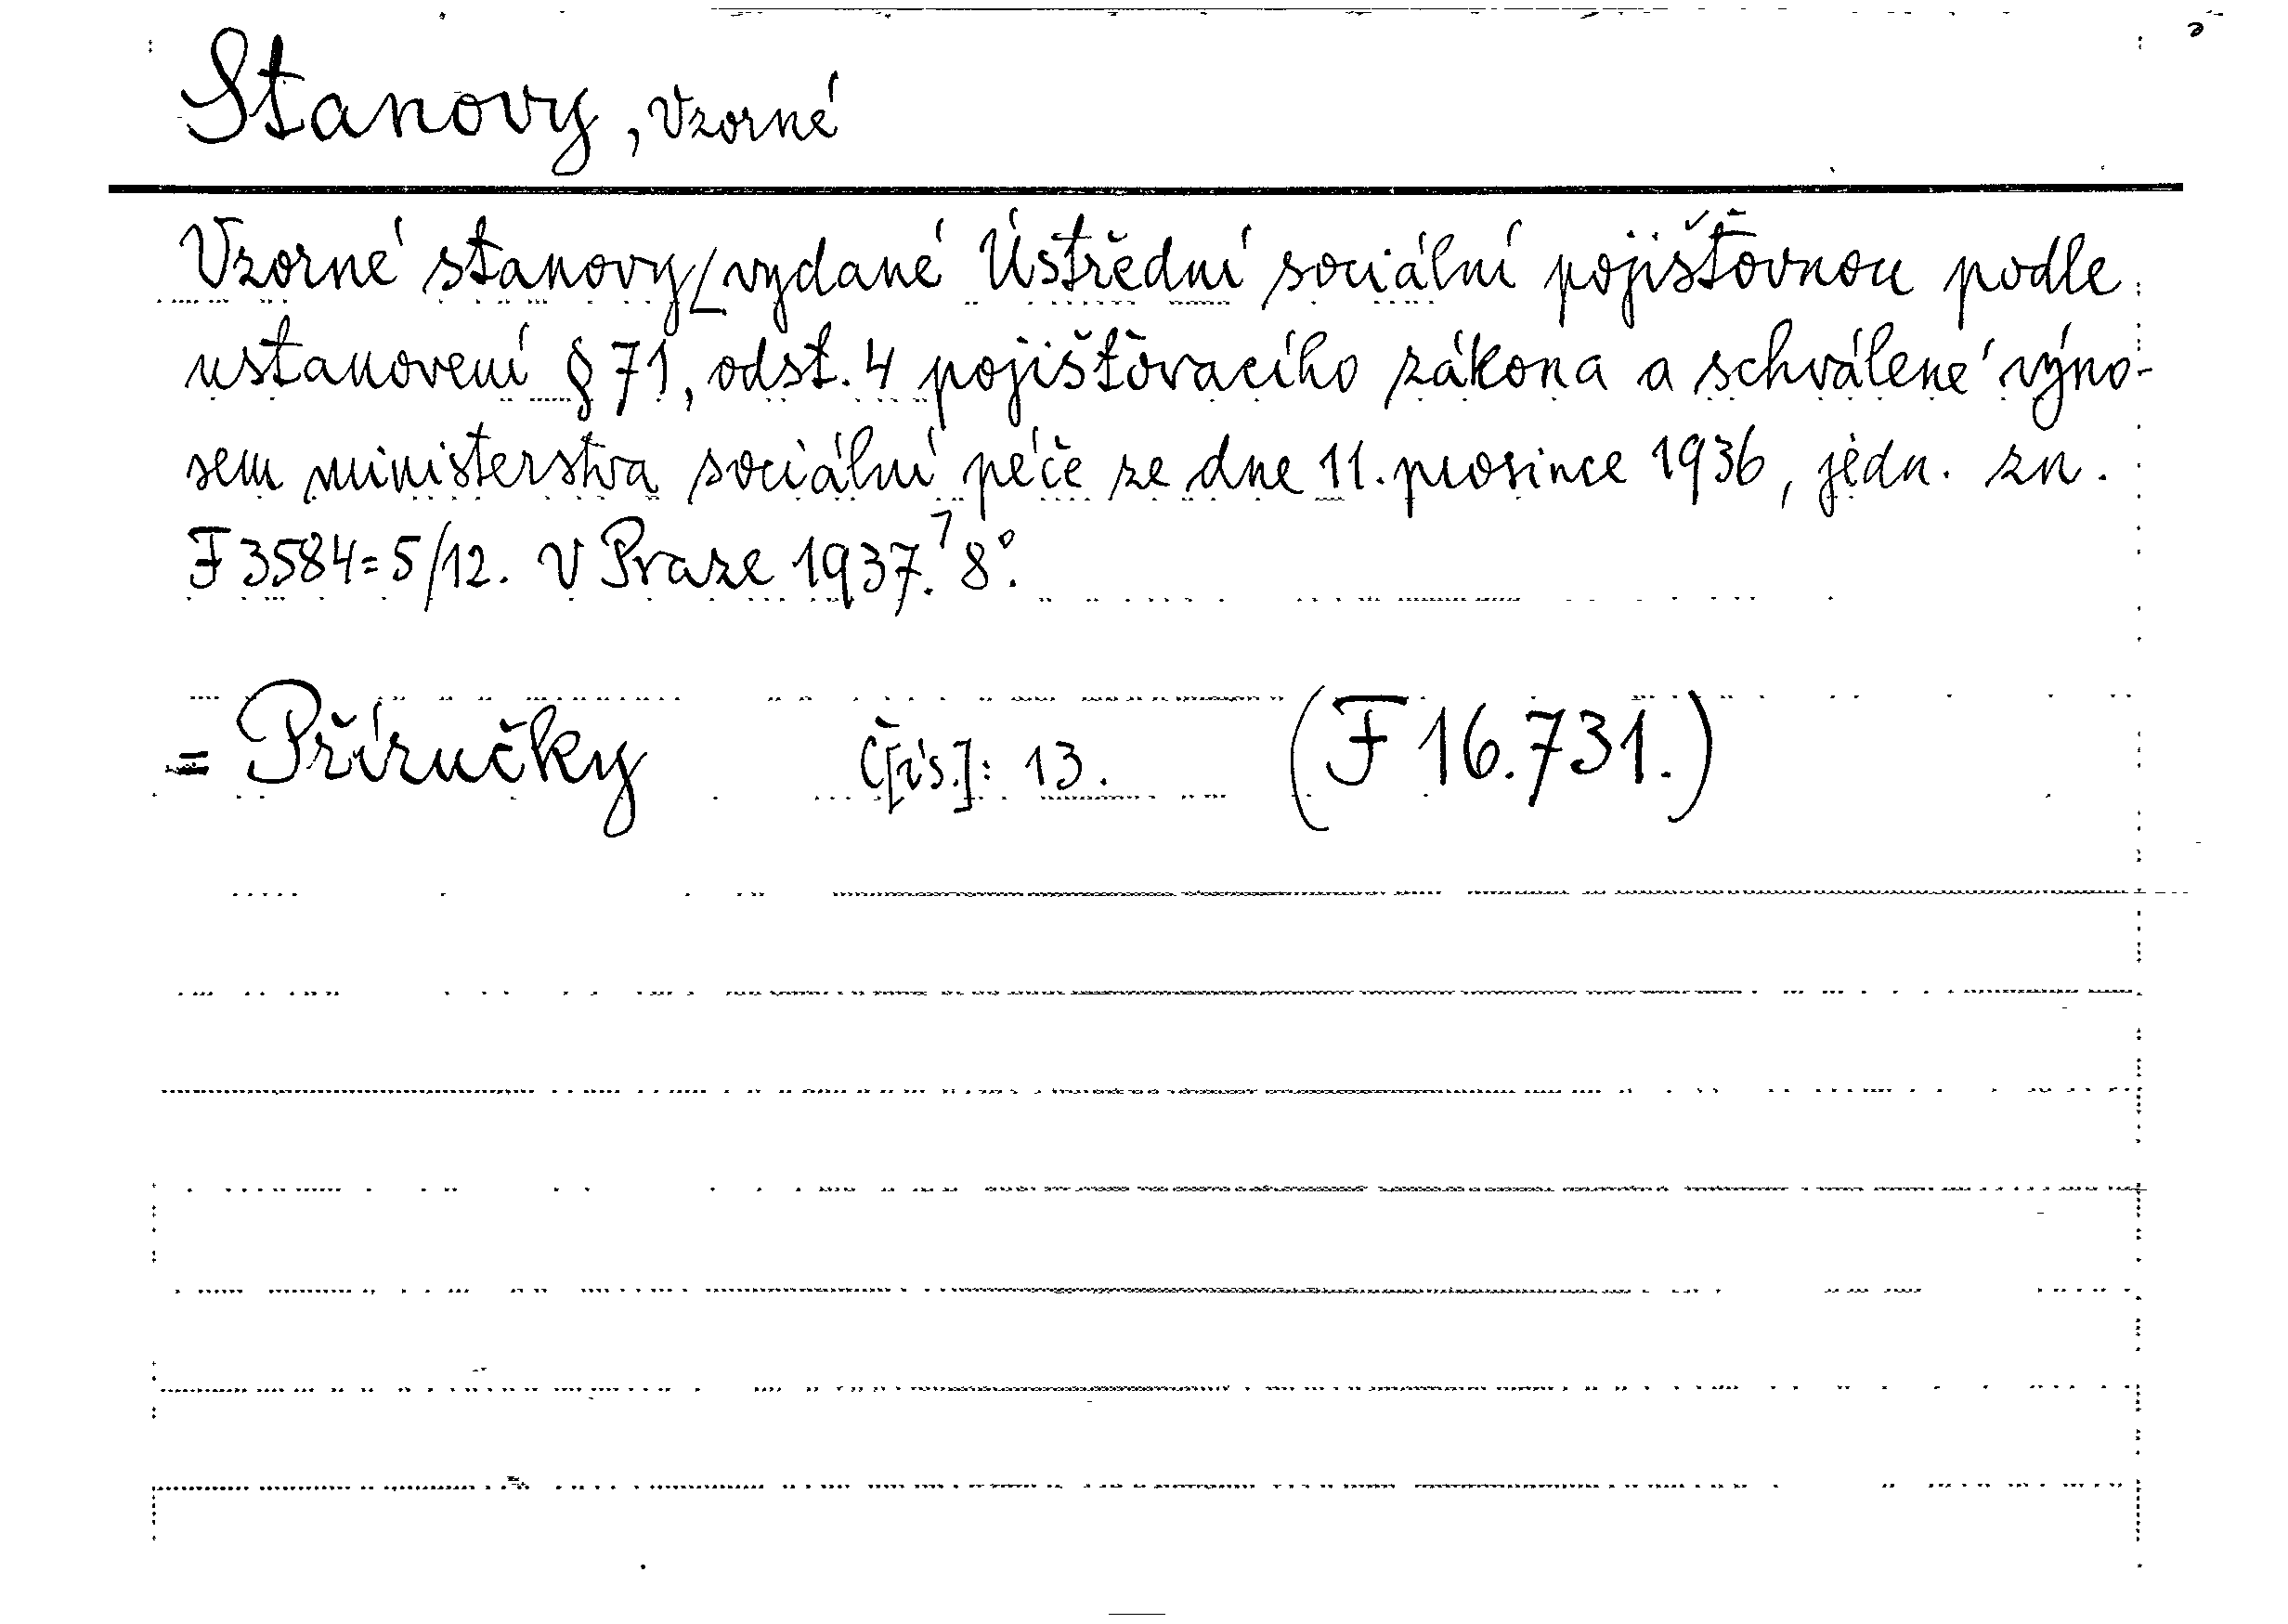 Stanovy, vzorné
Vzorné stanovy[vydané Ústřední sociální pojišťovnou podle
ustanovení § 71, odst. 4 pojišťovacího zákona a schválené výno-
sem ministerstva sociální péče ze dne 11. prosince 1936, jedn. zn.
F 3584=5/12. V Praze 1937.] 8°.
= Příručky Č[ís.]: 13. (F 16.731.)